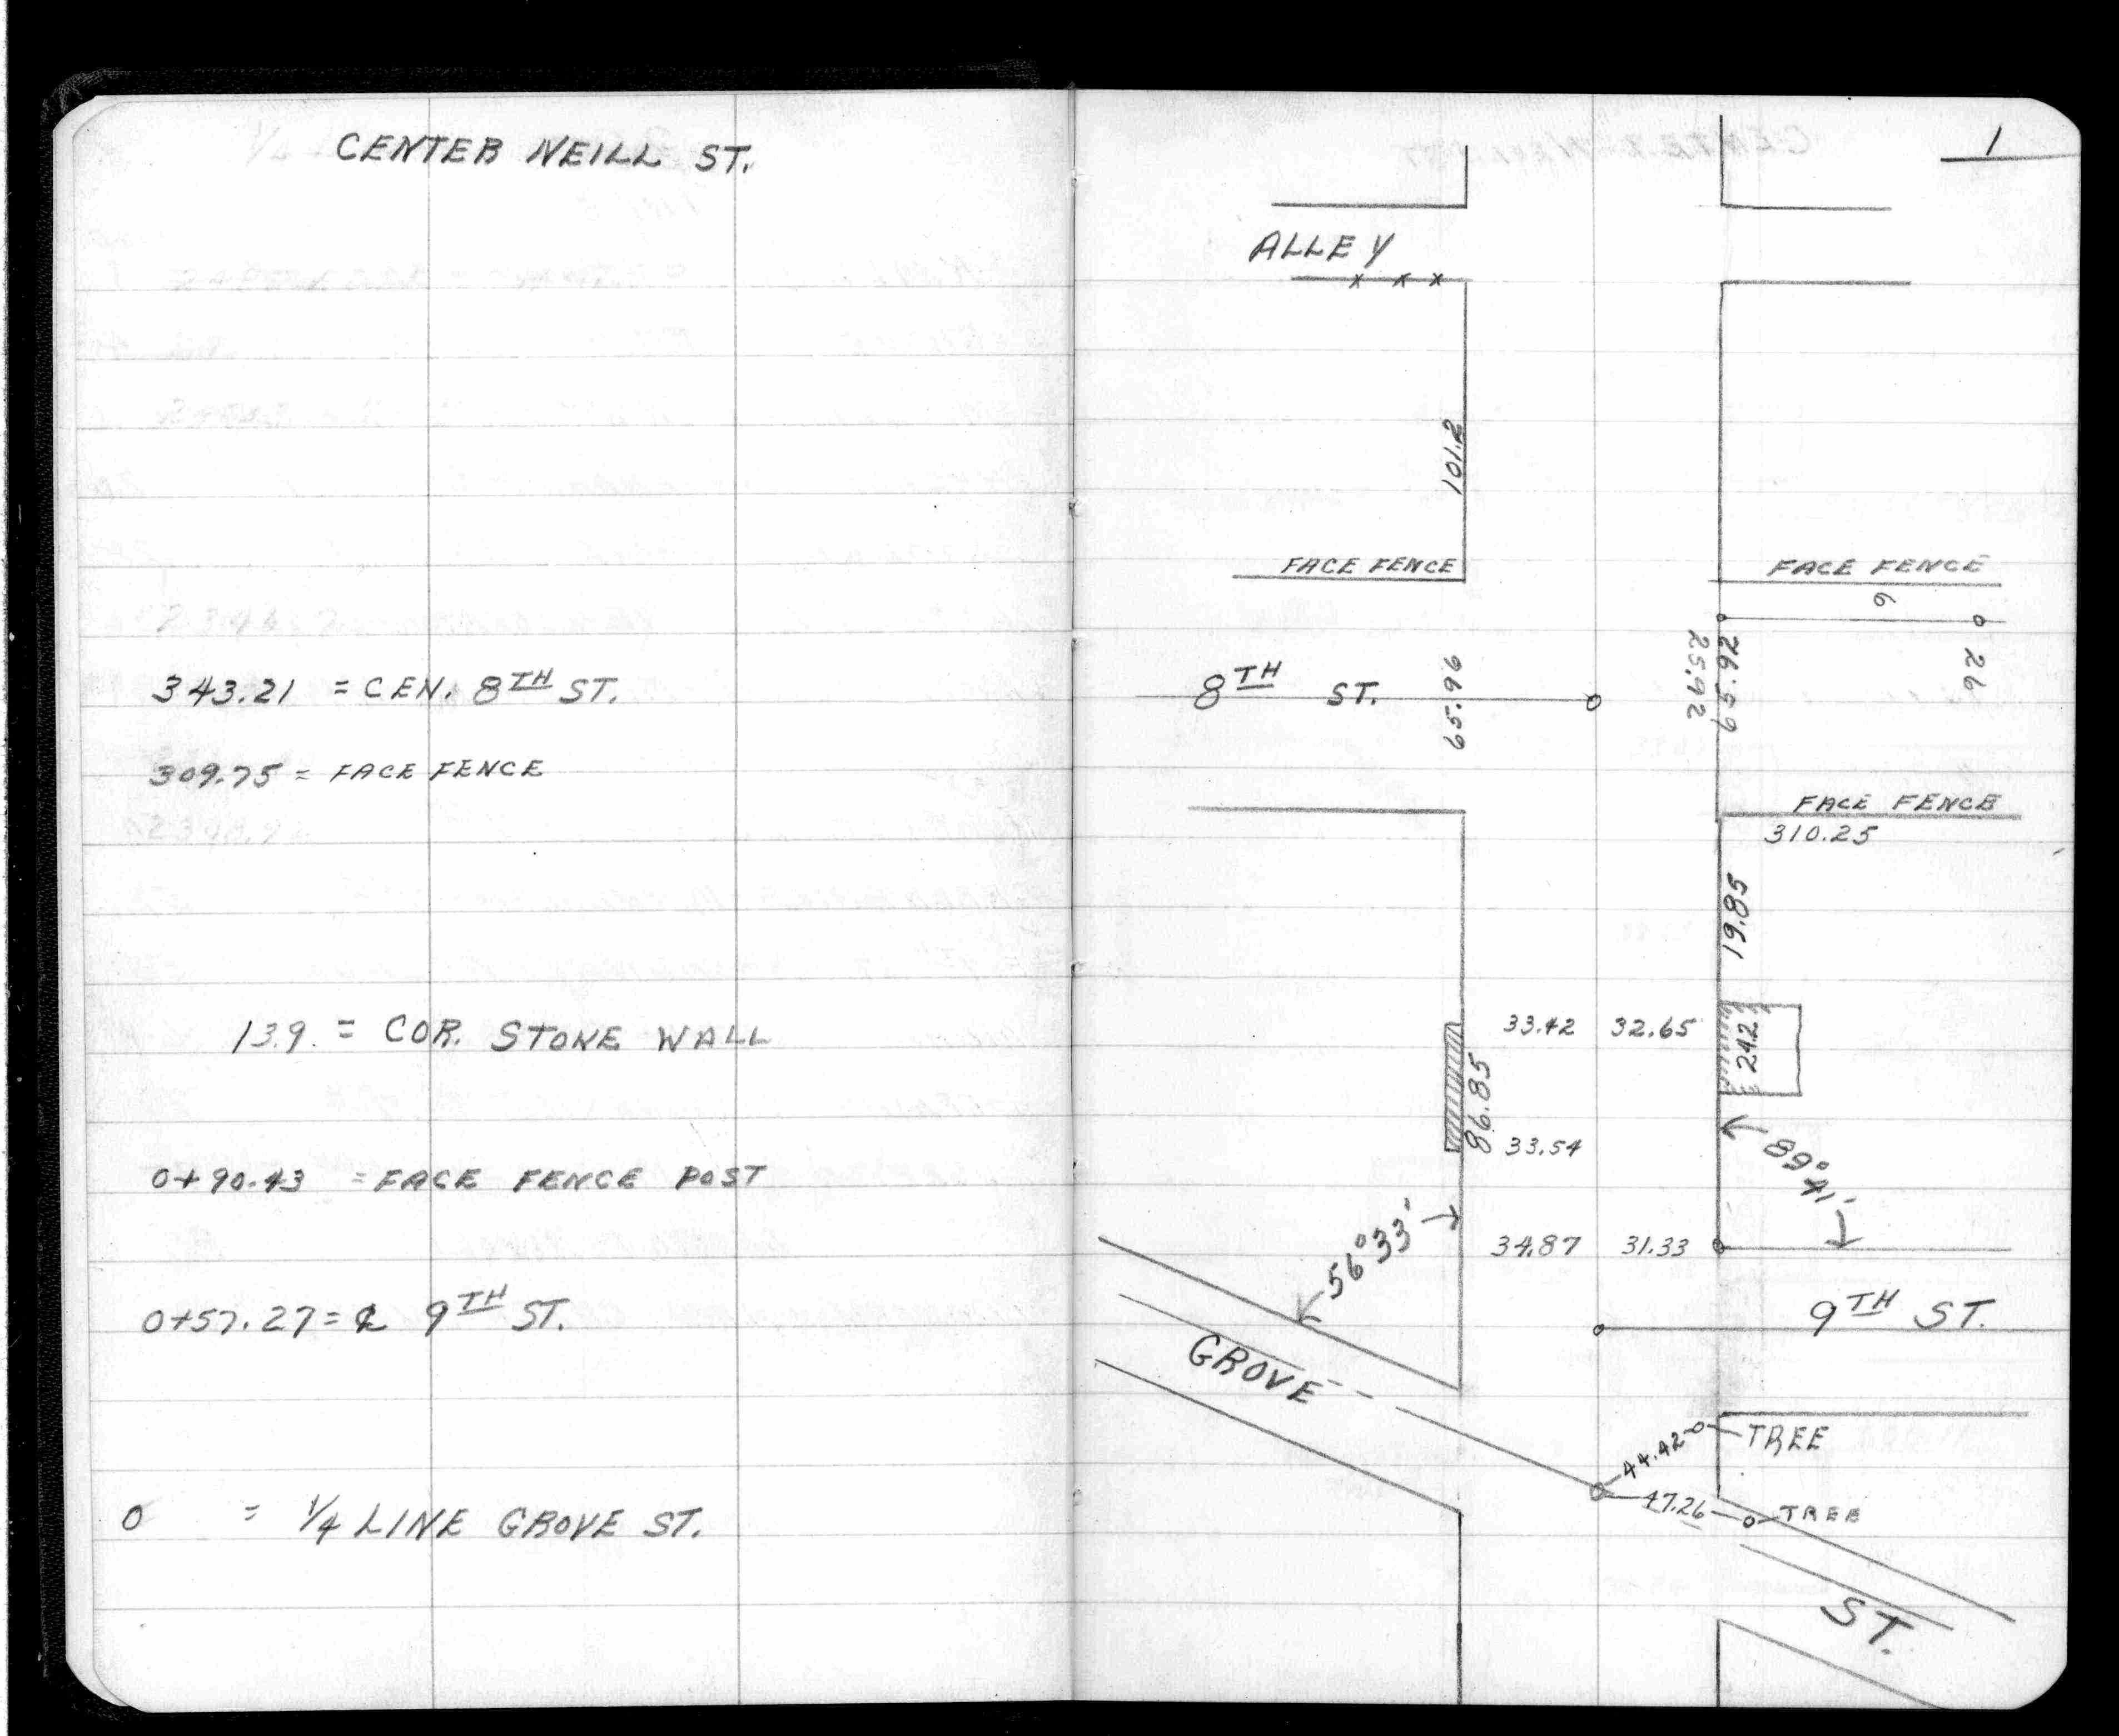 CENTER NEILL ST.
343.21 = CEN. 8TH ST.
309.75 = FACE FENCE
139. = COR. STONE WALL
0+90.43 = FACE FENCE POST
0+57.27 = ℄ 9TH ST.
0 = 1/4 LINE GROVE ST.
1
ALLEY
101.2
FACE FENCE
FACE FENCE
6
26
8TH ST.
65.96
25.92
65.92
FACE FENCE
310.25
19.85
33.42 32.65
24.2
86.85
33.54
89°
56°33'
34.87 31.33
9TH ST.
GROVE
44.42
TREE
47.26
TREE
ST.